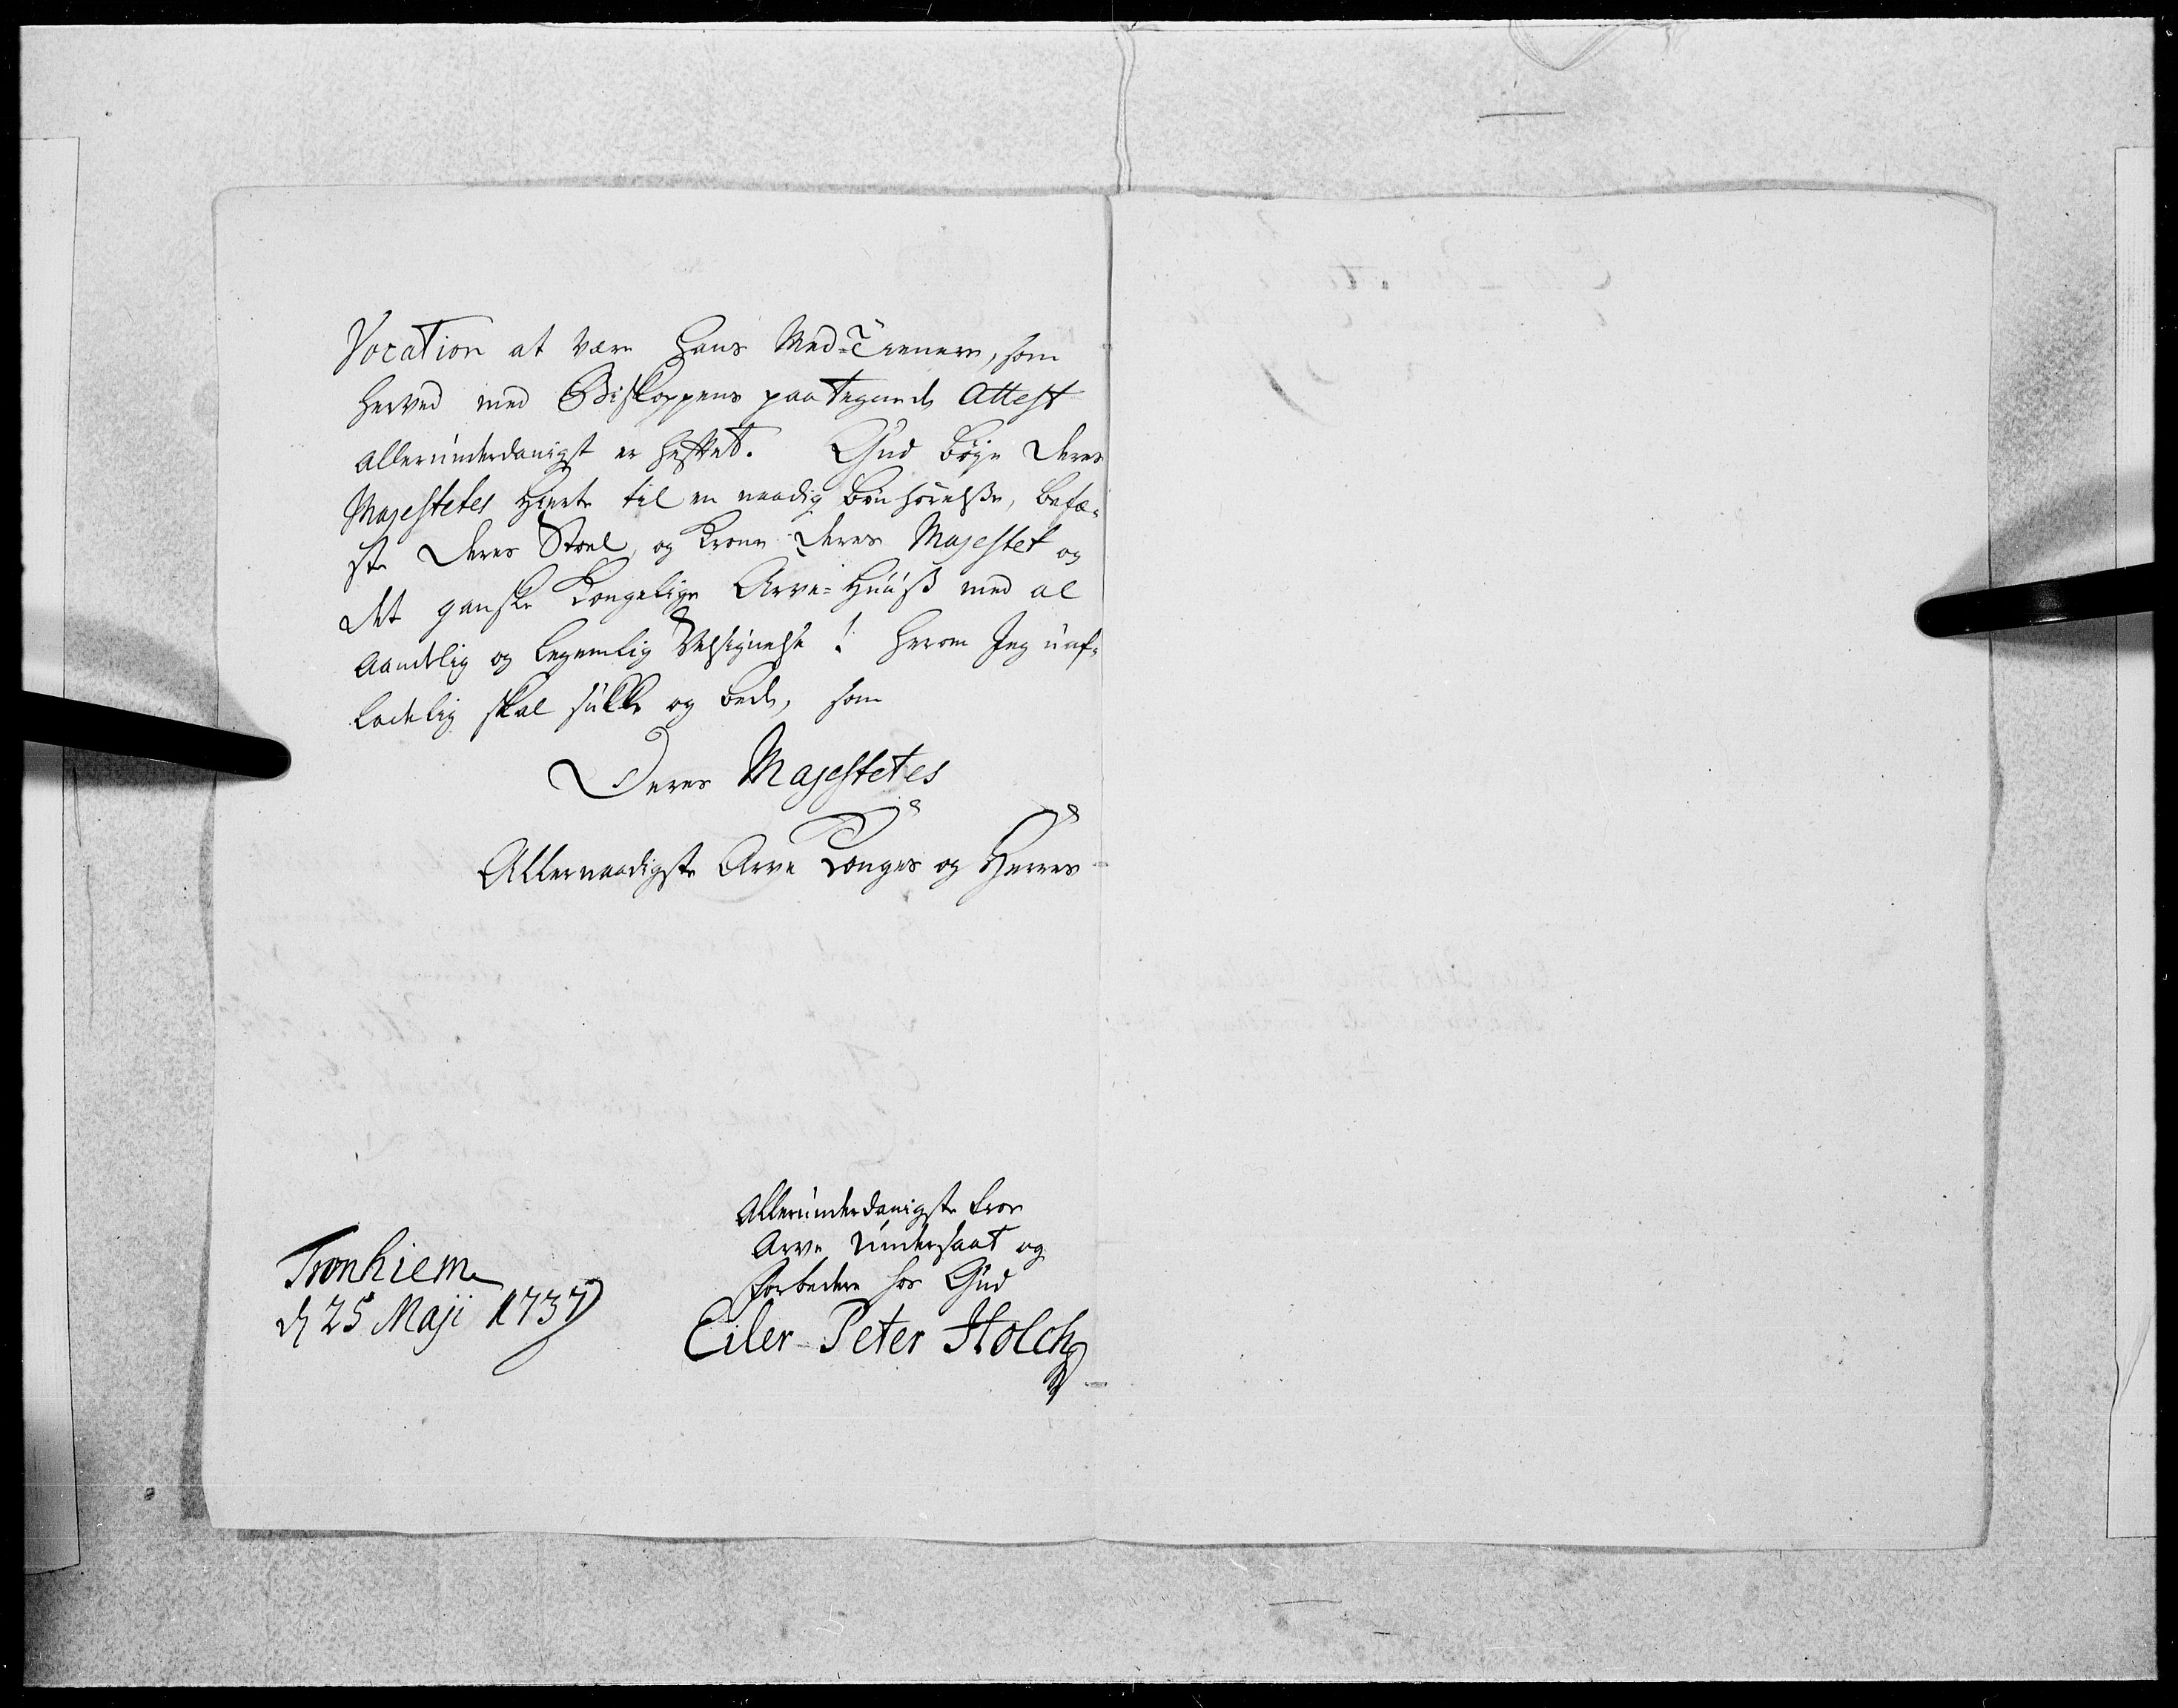 Vocation at være hans Med-Tienere, som
herved med Biskoppens paategnede Attest
allerunderdanigst er heftet. Gud bøye Deres
Majestetes Hierte til en naadig bønhørelße, befæ-
ste Deres Stoel, og krone Deres Majestet og
det ganske Kongelige Arve-Huuß med al
Aandelig og legemlig Velsignelse! herom Jeg uaf-
ladelig skal sukke og bede, som
Deres Majestetes
Allernaadigste Arve Konges og Herres
Allerunderdanigste troe
Arve Undersaat og
Forbedere hos Gud
Tronhiem
d 25 Maji 1737
Eiler Peter Holch